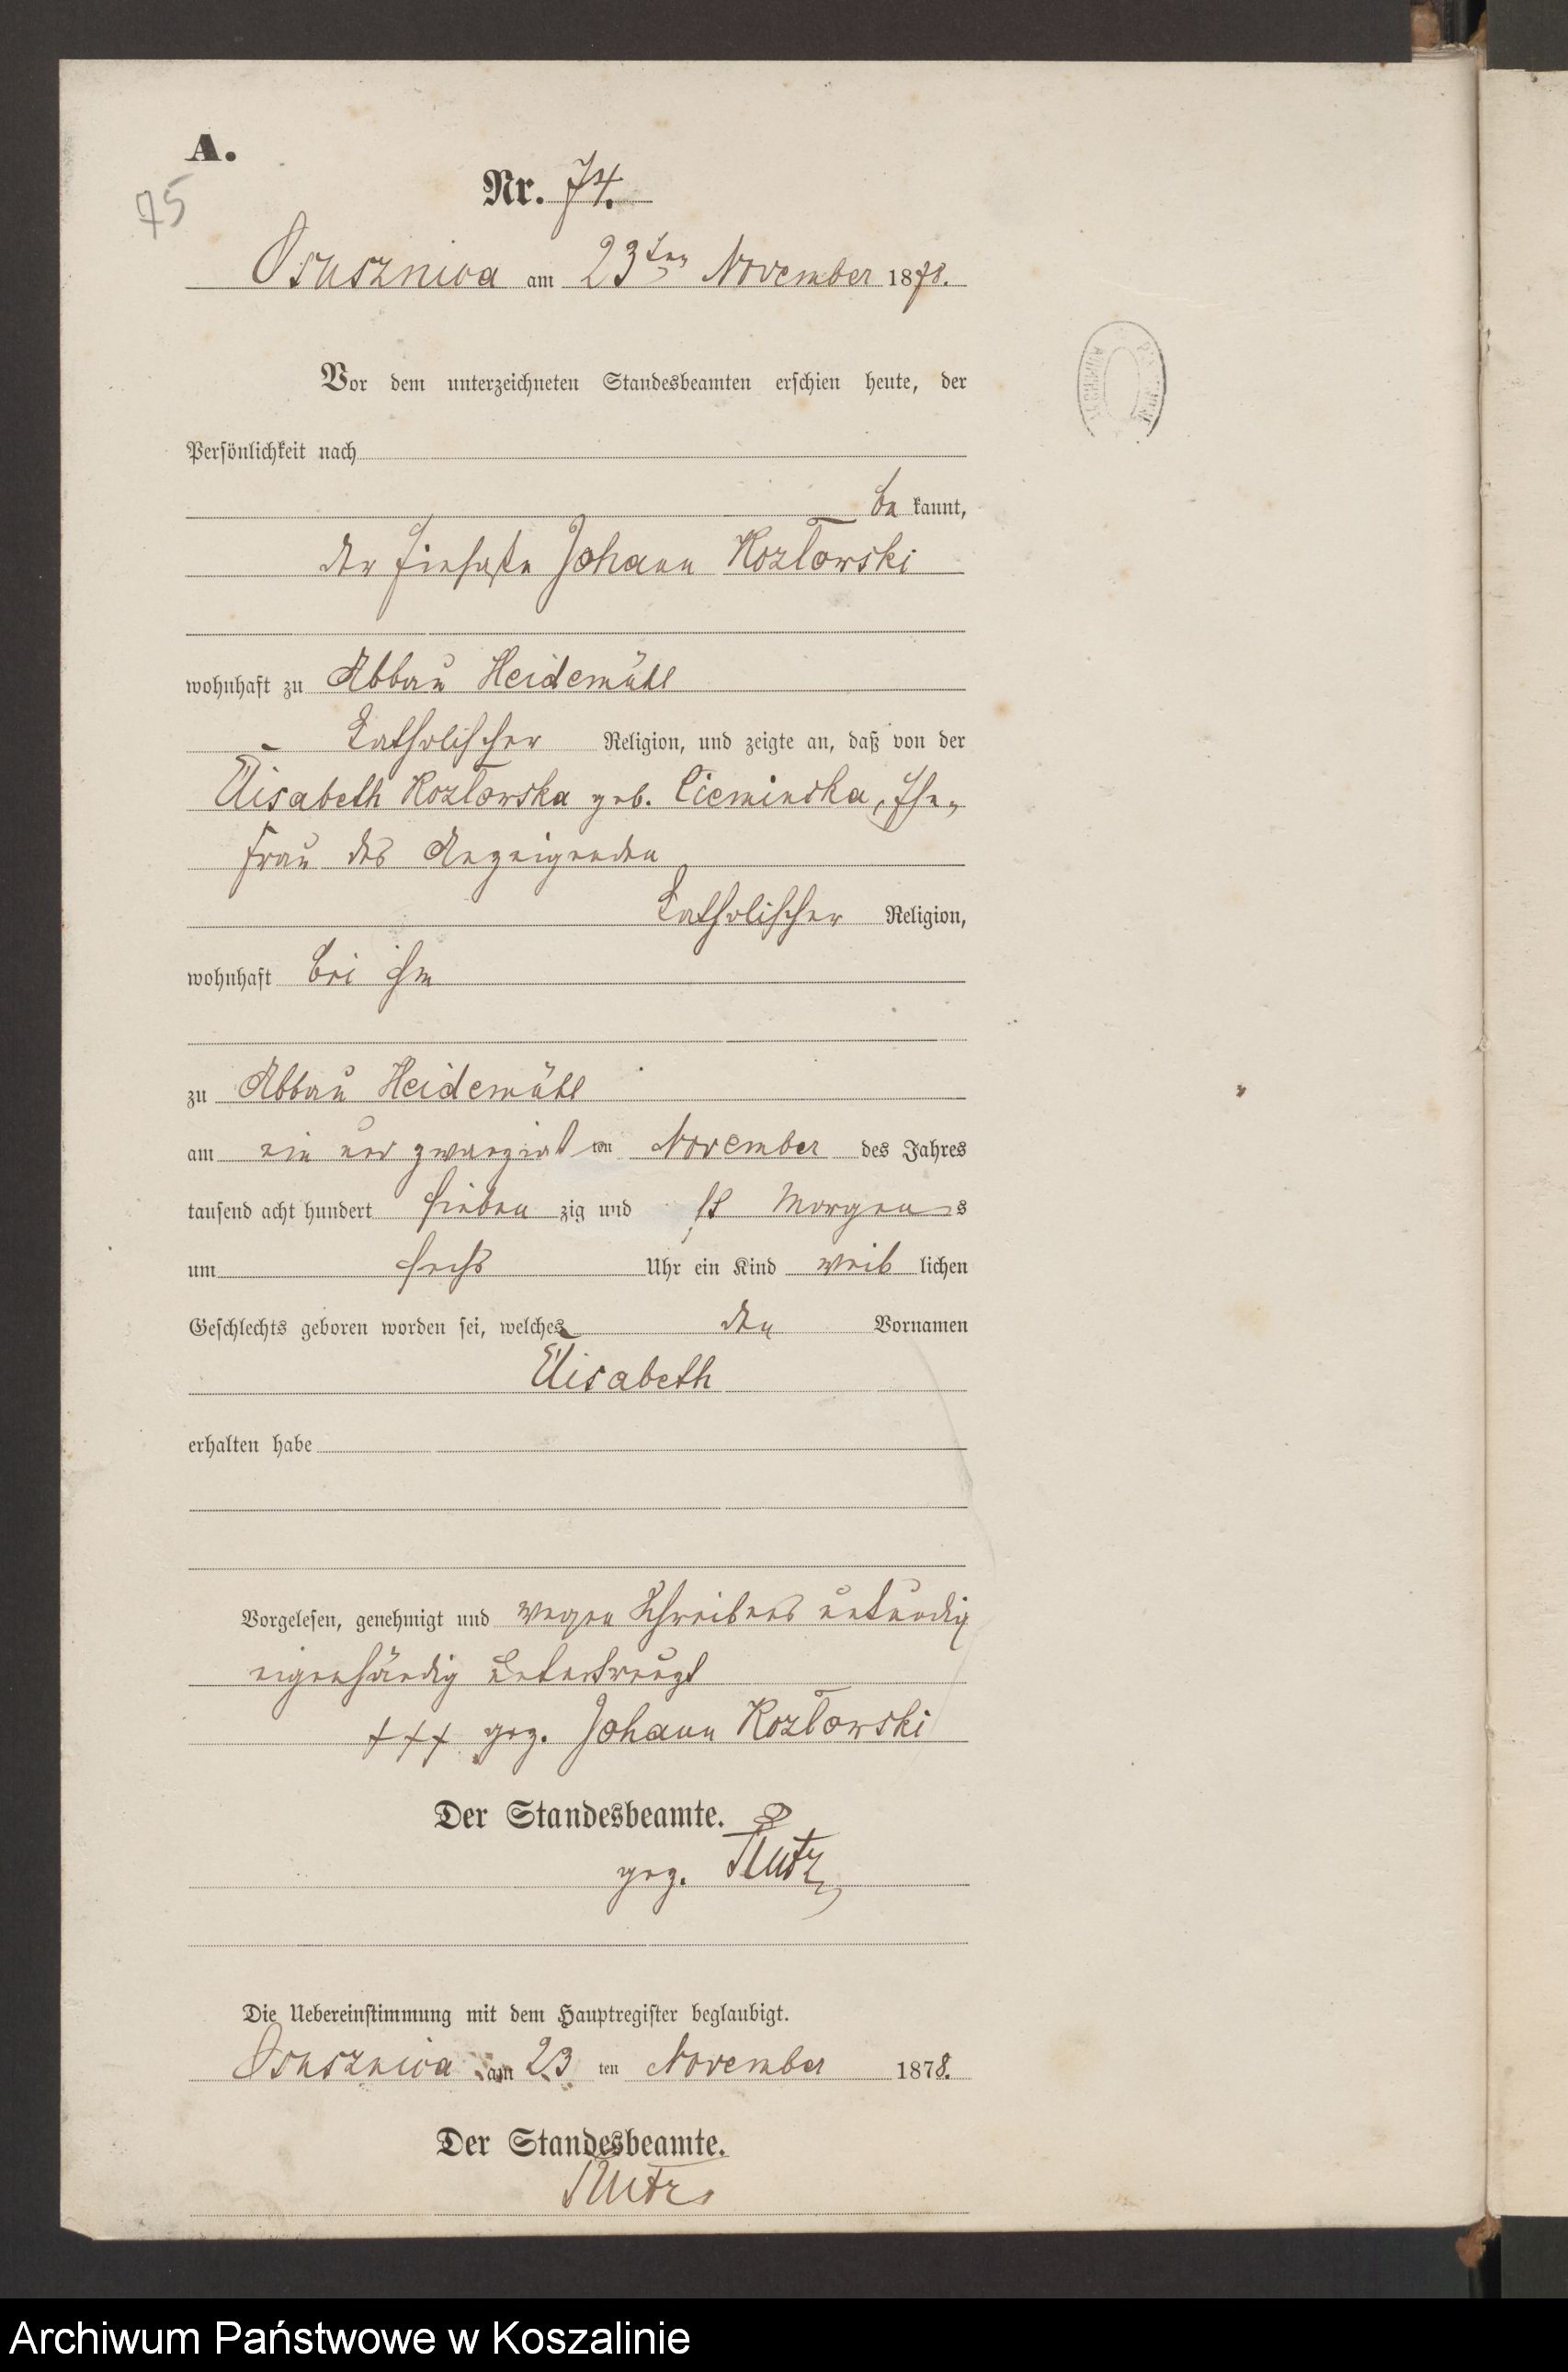 A.
75
Nr. 74.
Osusznica am 23ten November 1878.
Vor dem unterzeichneten Standesbeamten erschien heute, der
Persönlichkeit nach
be kannt,
der Einsaße Johann Kozłowski
wohnhaft zu Abbau Heidemühl
katholischer Religion, und zeigte an, daß von der
Elisabeth Kozłowska geb. Cieminska, Ehe-
frau des Anzeigenden
katholischer Religion,
wohnhaft bei ihm
zu Abbau Heidemühl
am ein und zwanzigst ten November des Jahres
tausend acht hundert sieben zig und Morgens
um sechs Uhr ein Kind weib lichen
Geschlechts geboren worden sei, welches den Vornamen
Elisabeth
erhalten habe
Vorgelesen, genehmigt und wegen Schreibens unkundig
eigenhändig unterkreuzt
+++ gez. Johann Kozłowski
Der Standesbeamte.
gez.
Die Uebereinstimmung mit dem Hauptregister beglaubigt.
Osusznica am 23 ten November 1878.
Der Standesbeamte.
Archiwum Państwowe w Koszalinie